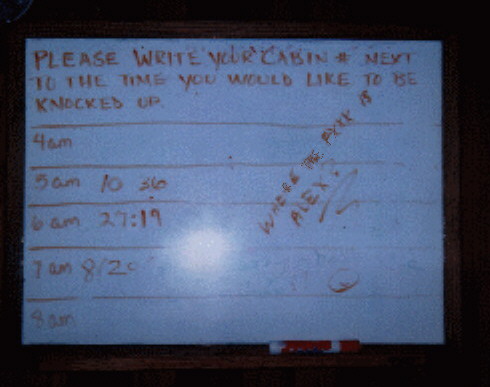 PLEASE WRITE YOUR CABIN # NEXT
TO THE TIME YOU WOULD LIKE TO BE
KNOCKED UP.
4am
5am 10 36
6am 27:19
7am 8/20
8am
WHERE THE FXXK IS
ALEX?